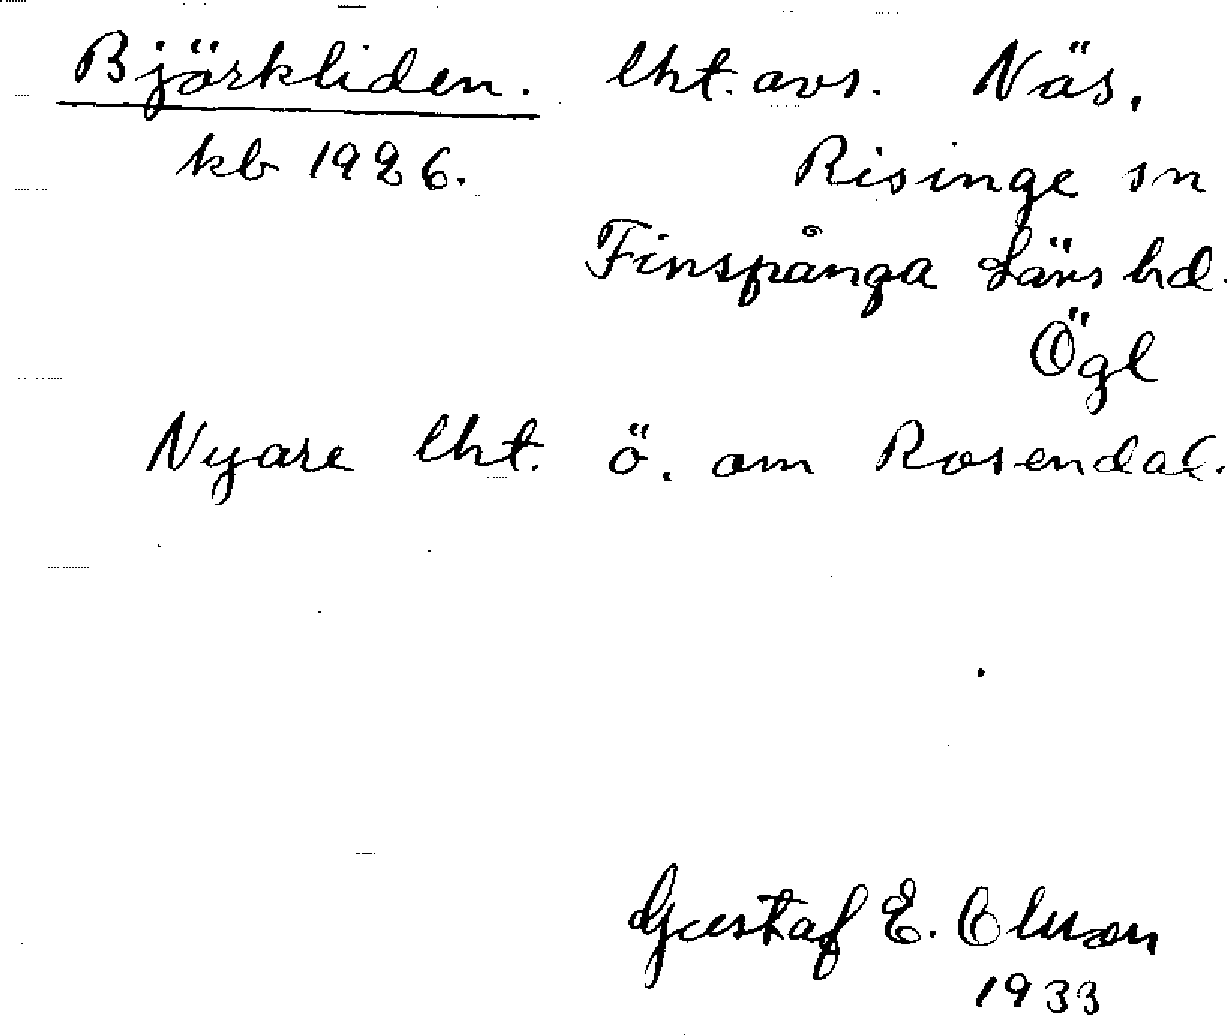 Björkliden. lht. avs. Näs.
kb 1926. Risinge sn
Finspånga Läns hd.
Ögl
Nyare lht. ö. om Rosendal.
Gustaf E. Olsson
1933